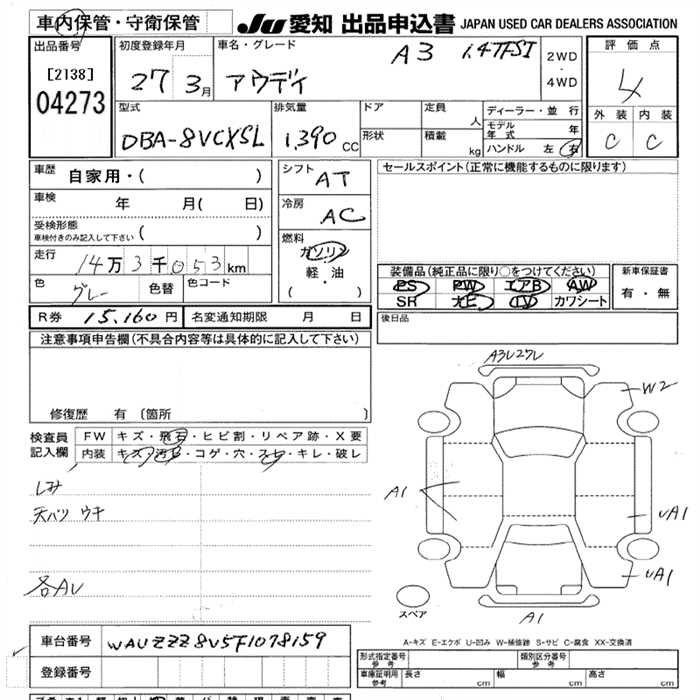 車内保管・守衛保管
JU 愛知 出品申込書 JAPAN USED CAR DEALERS ASSOCIATION
出品番号
[2138]
04273
初度登録年月
27 3月
車名・グレード
A3 1.4TFSI
アウディ
2WD
・
4WD
評価点
4
外装 内装
C C
型式
DBA-8VCXSL
排気量
1.390 cc
ドア
形状
定員 人
積載 kg
ディーラー・並行
モデル年式 年
ハンドル 左・右
車歴 自家用・( )
車検 年 月( 日)
受検形態
車検付きのみ記入して下さい ( )
走行 14万3千053km
色 グレー 色替 色コード
シフト AT
冷房 AC
燃料
ガソリン
軽・油
( ・ )
セールスポイント(正常に機能するものに限ります)
装備品(純正品に限り○をつけてください)
PS PW エアB AW
SR ナビ TV カワシート
新車保証書
有・無
後日品
R券 15,160円 名変通知期限 月 日
注意事項申告欄(不具合内容等は具体的に記入して下さい)
修復歴 有〔箇所 〕
検査員記入欄
FW キズ・飛石・ヒビ割・リペア跡・X要
内装 キズ・汚レ・コゲ・穴・スレ・キレ・破レ
シミ
天バリ ウキ
各AU
A3U27L
W2
A1
UA1
UA1
A1
スペア
A-キズ E-エクボ U-凹み W-補修跡 S-サビ C-腐食 XX-交換済
車台番号 WAUZZZ8V5F1078159
登録番号
形式指定番号 参考
類別区分番号 参考
車庫証明用 参考 長さ cm 幅 cm 高さ cm